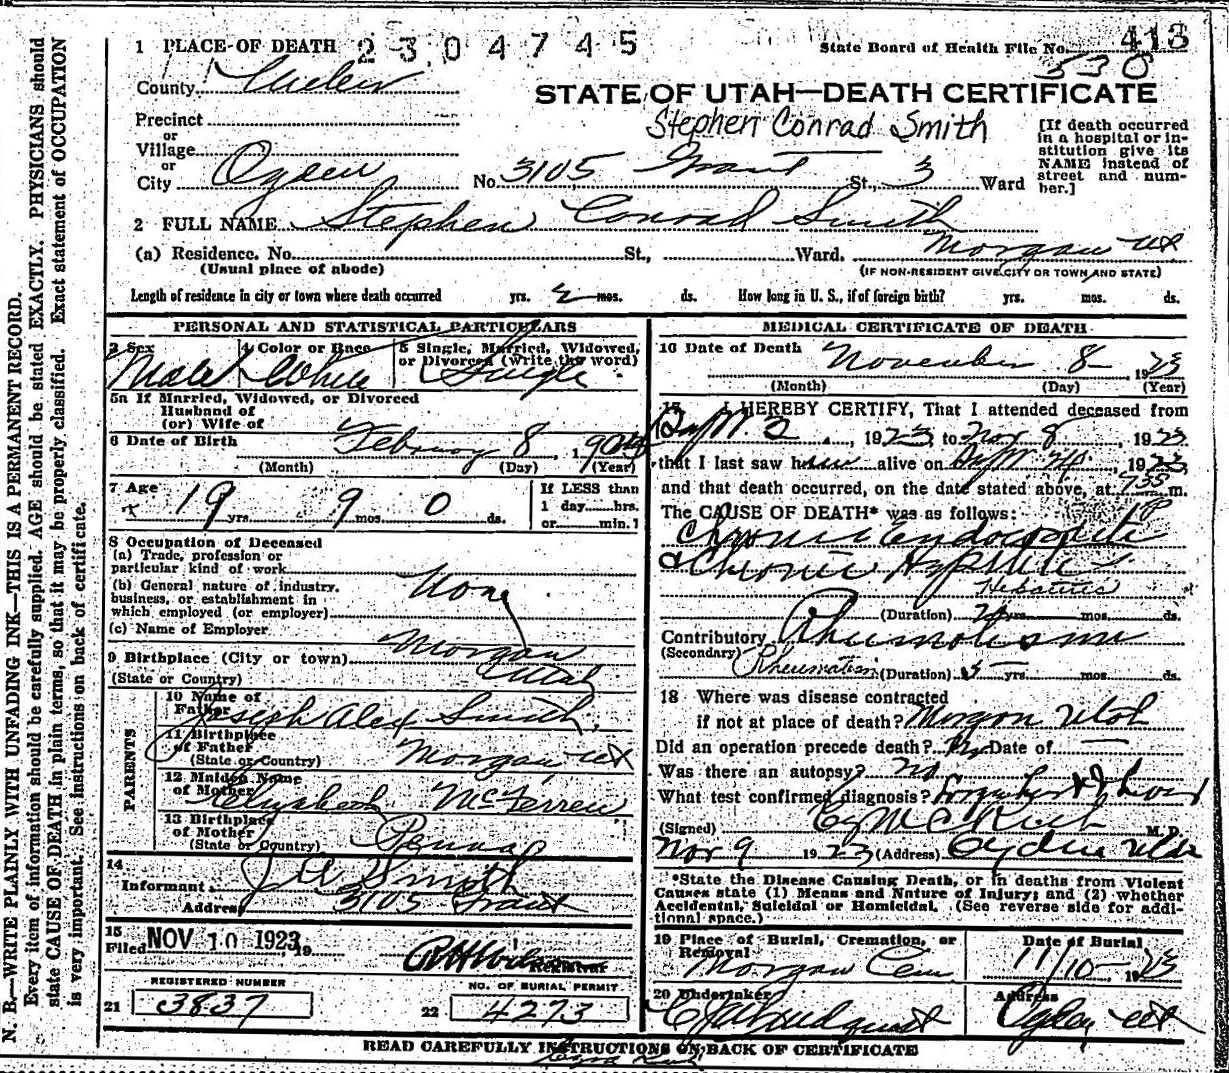 1 PLACE OF DEATH 2304745
State Board of Health File No. 413
530
County Weber
STATE OF UTAH—DEATH CERTIFICATE
Stephen Conrad Smith
Precinct
or
Village
or
City Ogden No. 3105 Grant St., 3 Ward
[If death occurred
in a hospital or in-
stitution give its
NAME instead of
street and num-
ber.]
2 FULL NAME Stephen Conrad Smith
(a) Residence. No. St., Ward. Morgan Ut
(Usual place of abode) (IF NON-RESIDENT GIVE CITY OR TOWN AND STATE)
Length of residence in city or town where death occurred yrs. 2 mos. ds. How long in U. S., if of foreign birth? yrs. mos. ds.
PERSONAL AND STATISTICAL PARTICULARS
3 Sex 4 Color or Race 5 Single, Married, Widowed,
or Divorced (write the word)
Male White Single
5a If Married, Widowed, or Divorced
Husband of
(or) Wife of
6 Date of Birth February 8, 1904
(Month) (Day) (Year)
7 Age 19 yrs. 9 mos. 0 ds.
If LESS than
1 day hrs.
or min.?
8 Occupation of Deceased
(a) Trade, profession or
particular kind of work
(b) General nature of industry,
business, or establishment in
which employed (or employer)
None
(c) Name of Employer
9 Birthplace (City or town) Morgan
(State or Country) Utah
PARENTS
10 Name of
Father Joseph Alex Smith
11 Birthplace
of Father
(State or Country) Morgan, Ut
12 Maiden Name
of Mother Elizabeth McFerren
13 Birthplace
of Mother
(State or Country) Penna
14
Informant J A Smith
Address 3105 Grant
15
Filed NOV 10 1923, 19
Registrar
REGISTERED NUMBER
21 3837
NO. OF BURIAL PERMIT
22 4273
MEDICAL CERTIFICATE OF DEATH
16 Date of Death November 8 1923
(Month) (Day) (Year)
17 I HEREBY CERTIFY, That I attended deceased from
Sept 2, 1923, to Nov 8, 1923
that I last saw him alive on Sept 1923,
and that death occurred, on the date stated above, at 735 P m.
The CAUSE OF DEATH* was as follows:
Chronic Endocarditis
& Chronic
Hepatitis
(Duration) yrs. mos. ds.
Contributory Rheumatism
(Secondary)
Rheumatism (Duration) 5 yrs. mos. ds.
18 Where was disease contracted
if not at place of death? Morgan Utah
Did an operation precede death? No Date of
Was there an autopsy? No
What test confirmed diagnosis?
(Signed) M. D.
Nov 9 1923 (Address) Ogden Utah
*State the Disease Causing Death, or in deaths from Violent
Causes state (1) Means and Nature of Injury; and (2) whether
Accidental, Suicidal or Homicidal. (See reverse side for addi-
tional space.)
19 Place of Burial, Cremation, or
Removal Morgan Cem
Date of Burial
11/10 1923
20 Undertaker
Address
Ogden Ut
READ CAREFULLY INSTRUCTIONS ON BACK OF CERTIFICATE
N. B.—WRITE PLAINLY WITH UNFADING INK—THIS IS A PERMANENT RECORD.
Every item of information should be carefully supplied. AGE should be stated EXACTLY. PHYSICIANS should
state CAUSE OF DEATH in plain terms, so that it may be properly classified. Exact statement of OCCUPATION
is very important. See instructions on back of certificate.